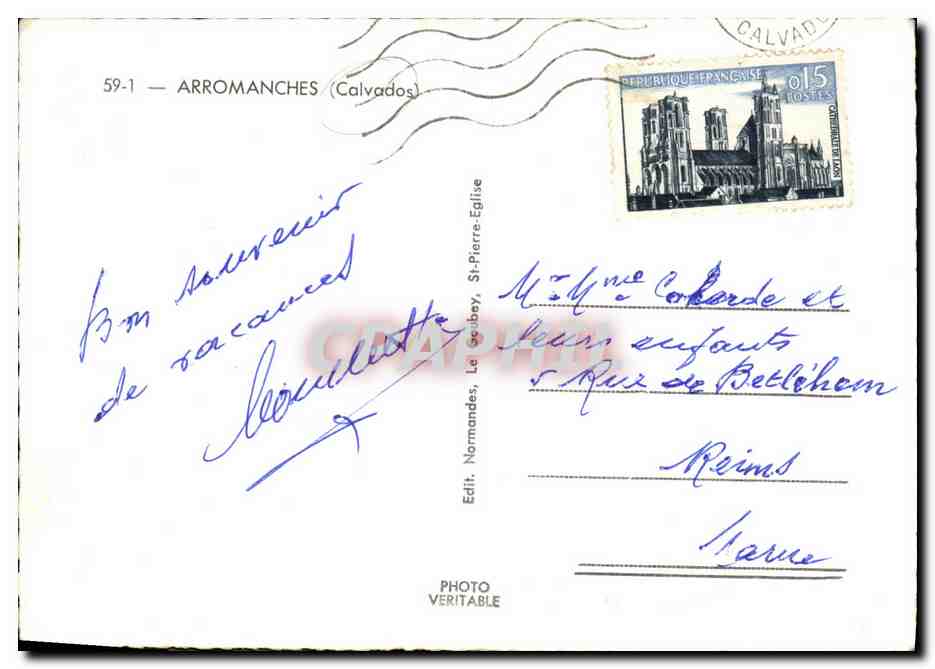 CALVADO
59-1 — ARROMANCHES (Calvados)
REPUBLIQUE FRANÇAISE
0,15
POSTES
CATHÉDRALE DE LAON
Bon souvenir
de vacances
Edit. Normandes, Le Goubey, St-Pierre-Eglise
CPAPHIL
Mr. Mme et
leurs enfants
5 Rue de Betléhem
Reims
Marne
PHOTO
VERITABLE